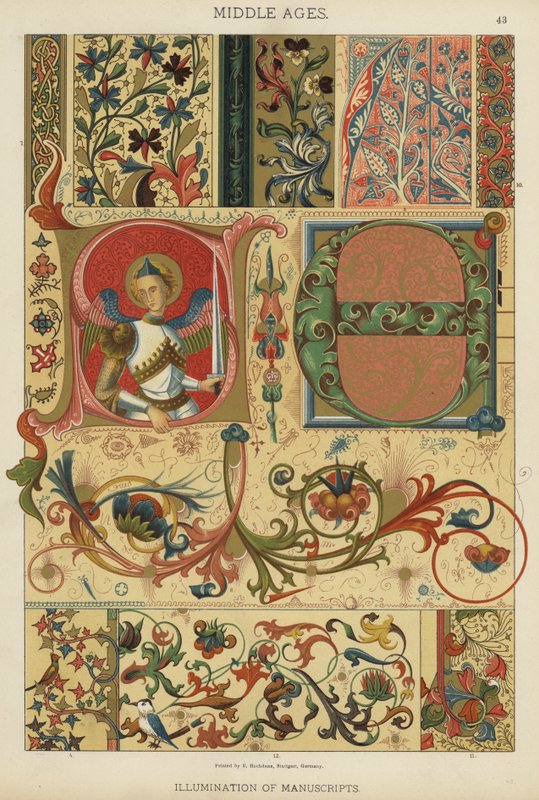 MIDDLE AGES.
43
10.
4.
12.
11.
Printed by E. Hochdanz, Stuttgart, Germany.
ILLUMINATION OF MANUSCRIPTS.